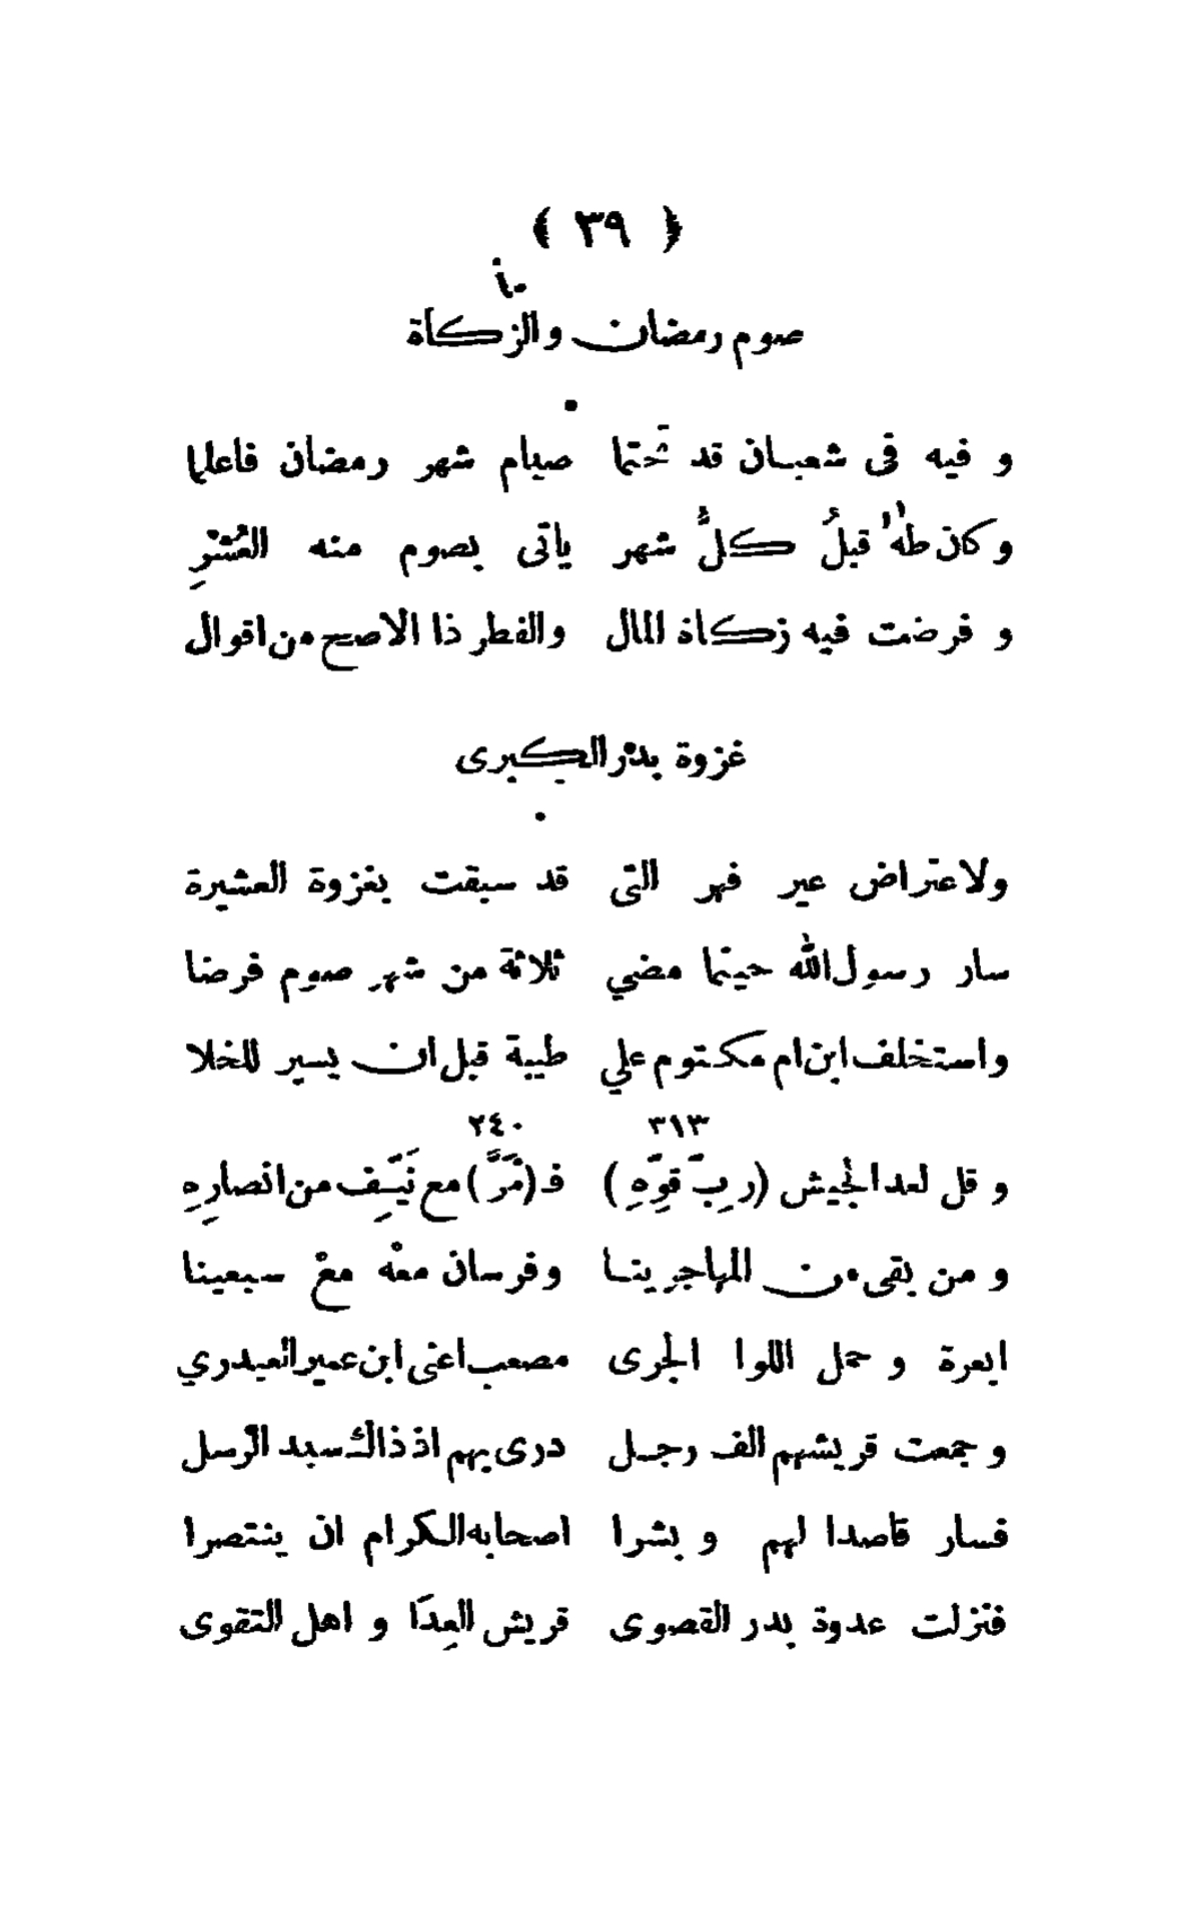 ﴿ ٣٩ ﴾
صوم رمضان والزكاة
و فيه فى شعبان قد تَحتما صيام شهر رمضان فاعلما
و كان طه قبلُ كلَّ شهر ياتى بصوم منه العُشْرِ
و فرضت فيه زكاة المال والفطر ذا الاصح من اقوال
غزوة بدر الكبرى
ولاعتراض عير فهر التى قد سبقت بغزوة العشيرة
سار رسول الله حينما مضي ثلاثة من شهر صوم فرضا
واستخلف ابن ام مكتوم علي طيبة قبل ان يسير للخلا
٣١٣ ٢٤٠
و قل لعد الجيش (ربِّ قوِّهِ) فـ (مَرَّ) مع نَيِّفٍ من انصارِهِ
و من بقى من المهاجرينا وفرسان معْه معْ سبعينا
ابعرة و حمل اللوا الجرى مصعب اعنى ابن عمير العبدري
و جمعت قريشهم الف رجل درى بهم اذ ذاك سيد الرسل
فسار قاصدا لهم و بشرا اصحابه الكرام ان ينتصرا
فنزلت عدوة بدر القصوى قريش العِدَا و اهل التقوى